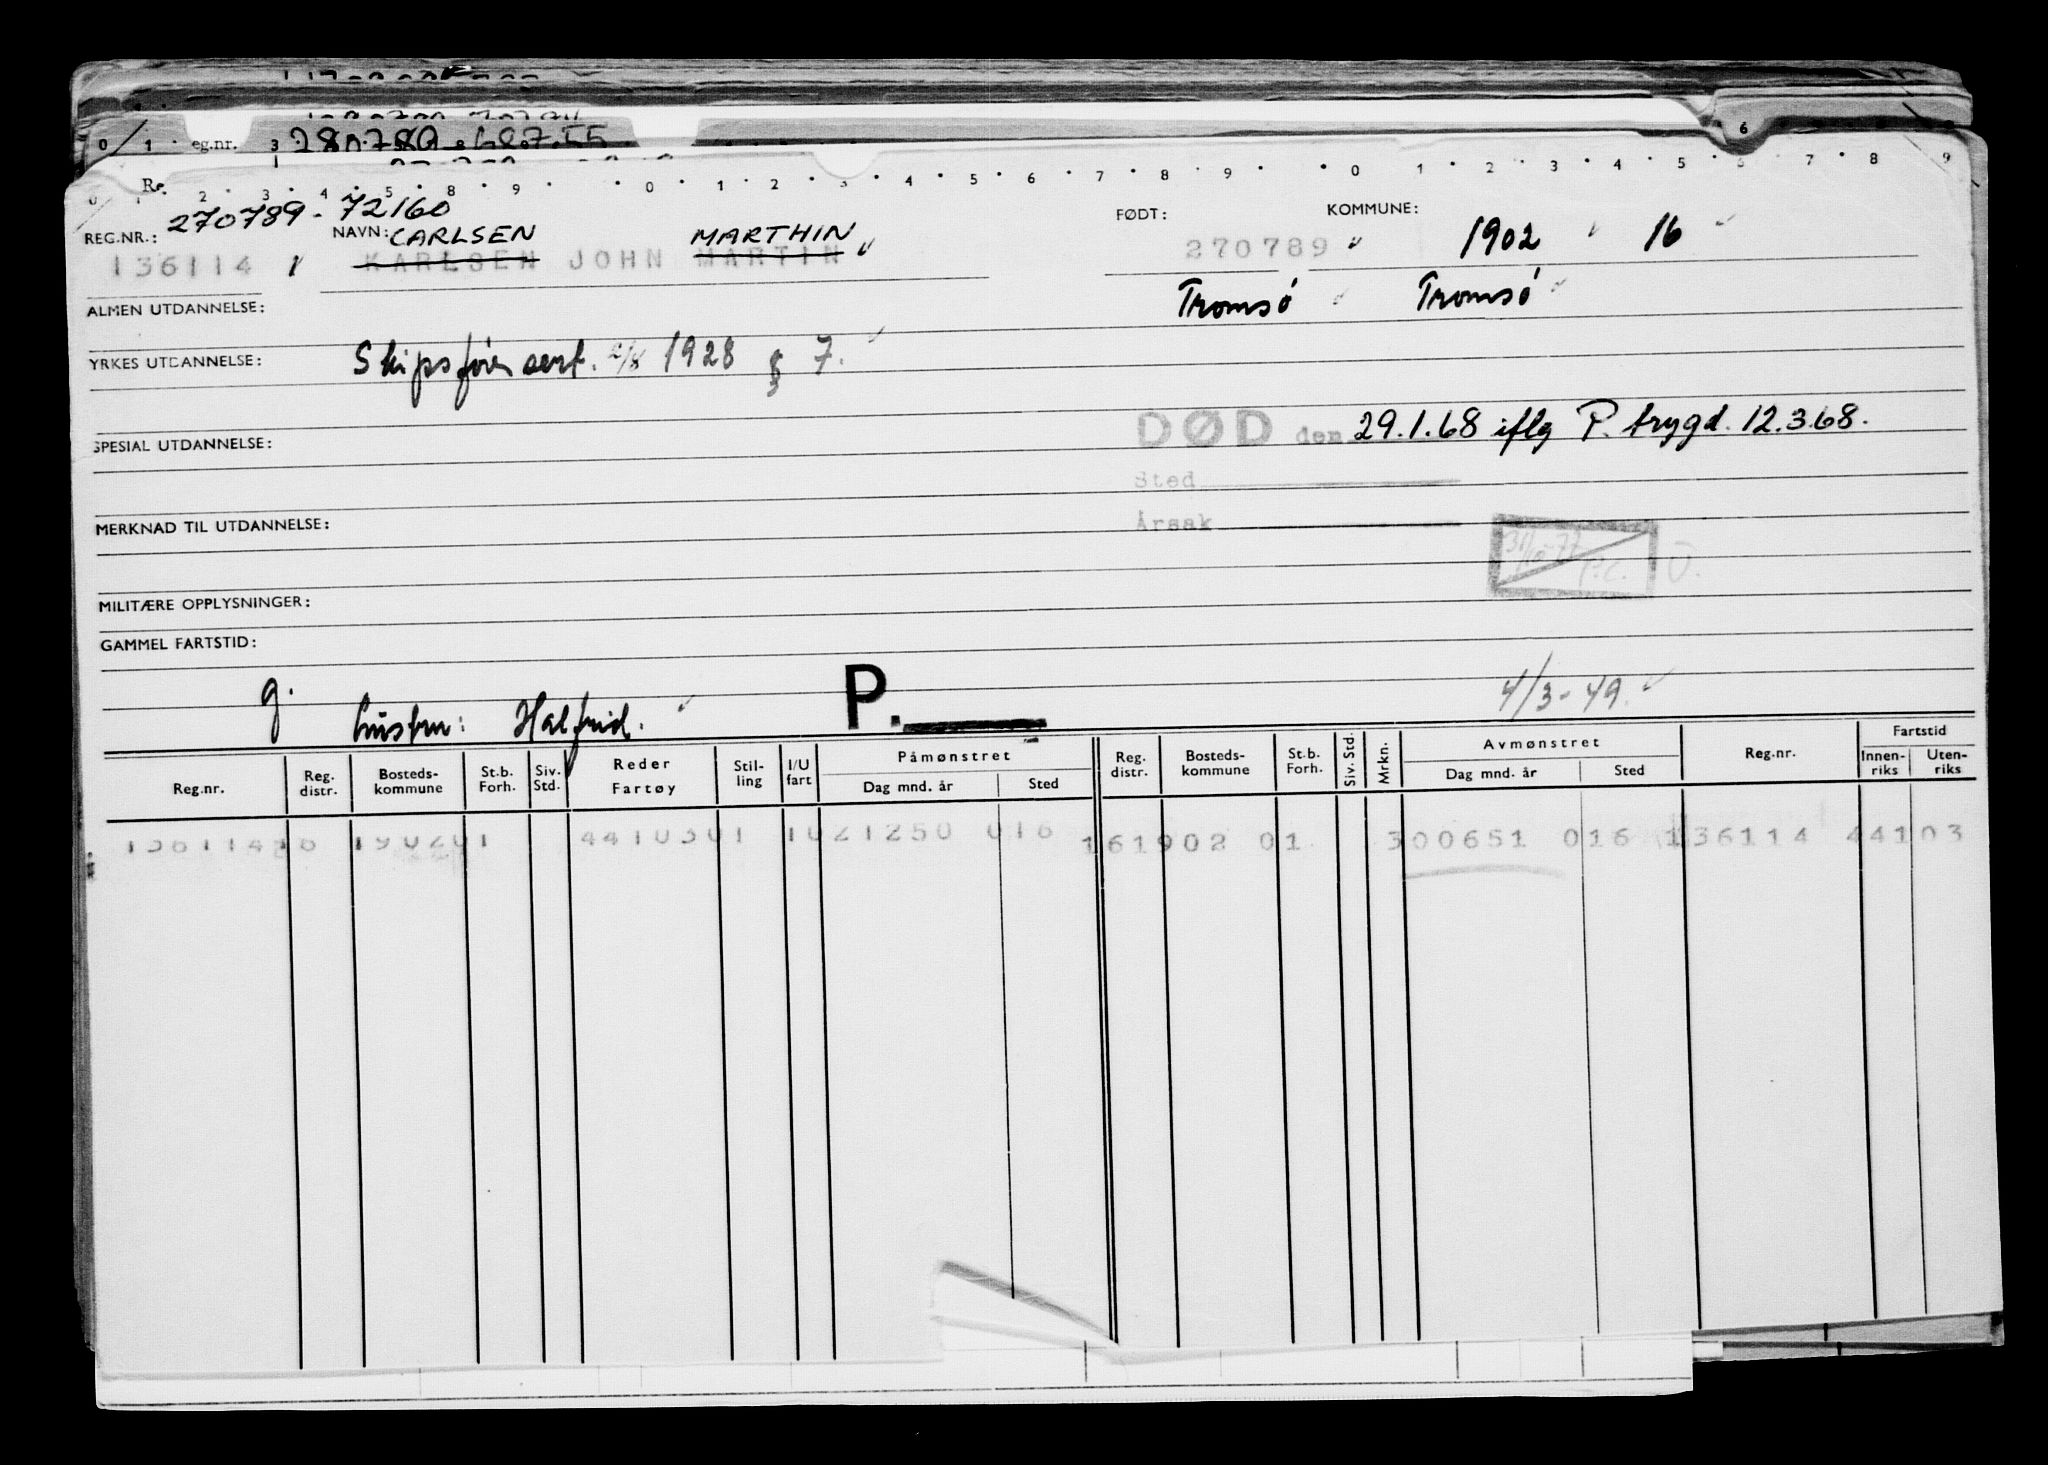 0 1 eg.nr. 3 280789 6
0 Re. 2 3 4 5 8 9 0 1 2 3 4 5 6 7 8 9 0 1 2 3 4 5 6 7 8 9
270789-72160
REG.NR.: NAVN: CARLSEN MARTHIN FØDT: KOMMUNE:
136114 KARLSEN JOHN MARTIN 270789 1902 16
Tromsö Tromsö
ALMEN UTDANNELSE:
YRKES UTDANNELSE: Skipsförersert. 2/8 1928 § 7.
DØD den 29.1.68 iflg P. trygd. 12.3.68.
SPESIAL UTDANNELSE:
Sted
Årsak
MERKNAD TIL UTDANNELSE:
MILITÆRE OPPLYSNINGER:
GAMMEL FARTSTID:
g. hustru: Halfrid. P. 4/3-49.
Reg.nr. Reg. distr. Bosteds-kommune St.b. Forh. Siv. Std. Reder Fartøy Stil-ling I/U fart Påmønstret Dag mnd. år Sted Reg. distr. Bosteds-kommune St.b. Forh. Siv. Std. Mrkn. Avmønstret Dag mnd. år Sted Reg.nr. Fartstid Innen-riks Uten-riks
136114 16 1902 01 4410301 10 21250 016 161902 01 300651 016 136114 44103